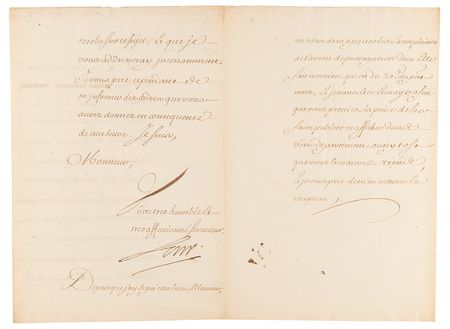 resolu sur ce sujet, Ce que je
vous adresseray incessamment.
Je vous prie cependant de
m'informer des ordres que vous
aurez donnez en consequence
de cette lettre. Je suis,
Monsieur,
Vôtre tres humble et
tres affectionné serviteur.
Depuis que j'ay signé cette lettre Monsieur,
on vient de m'apporter les Exemplaires
de l'arrest de prorogation dont Elle
fait mention, qui est du 20 du pnt
mois, Et je vous les Envoye afin
que vous preniez la peine de les
faire publier et afficher dans
votre departement aussy tost
que vous les aurez receus,
Et je vous prie de m'en accuser la
reception